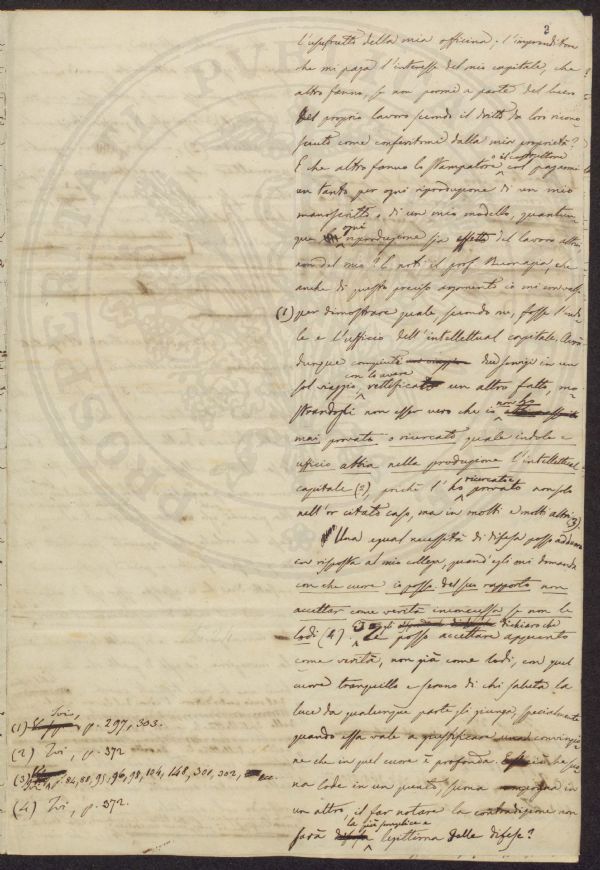 3
l'usufrutto della mia officina; l'imprenditore
che mi paga l'interesse del mio capitale, che
altro fanno, se non pormi a parte del lucro
del proprio lavoro secondo il dritto da loro ricono-
sciuto come conferitomi dalla mia proprietà?
E che altro fanno lo stampatore o il costruttore col pagarmi
un tanto per ogni riproduzione di un mio
manoscritto, o di un mio modello, quantun-
que ogni riproduzione sia effetto del lavoro altrui
non del mio? E noti il prof. Buonapa, che
anche di questo preciso argomento io mi
(1) per dimostrare quale, secondo me, fosse l'indo-
le e l'ufficio dell'intellettual capitale. Avrò
dunque compiuto due servigi in un
sol viaggio, con lo avere rettificato un altro fatto, mo-
strandogli non esser vero che io non ho
mai provato o ricercato quale indole e
ufficio abbia nella produzione l'intellettual
capitale (2), poiché l'ho ricercato e provato non solo
nell'or citato caso, ma in molti e molti altri (3).
Una egual necessità di difesa posso addurre
in risposta al mio collega, quand'egli mi domanda
con che cuore io possa del suo rapporto non
accettar come verità inconcussa se non le
lodi (4). dichiaro che
Le posso accettare appunto
come verità, non già come lodi, con quel
cuore tranquillo e sereno di chi saluta la
luce da qualunque parte gli giunga, specialmente
quando essa vale a giustificare una convinzio-
ne che in quel cuore è profonda. se
una lode in un punto, in
un altro, il far notare la contradizione non
sarà la più semplice e legittima delle difese?
(1) Ivi, p. 297, 303.
(2) Ivi, p. 372
(3) p. 84, 88, 95, 96, 98, 104, 148, 301, 302, ecc.
(4) Ivi, p. 372.